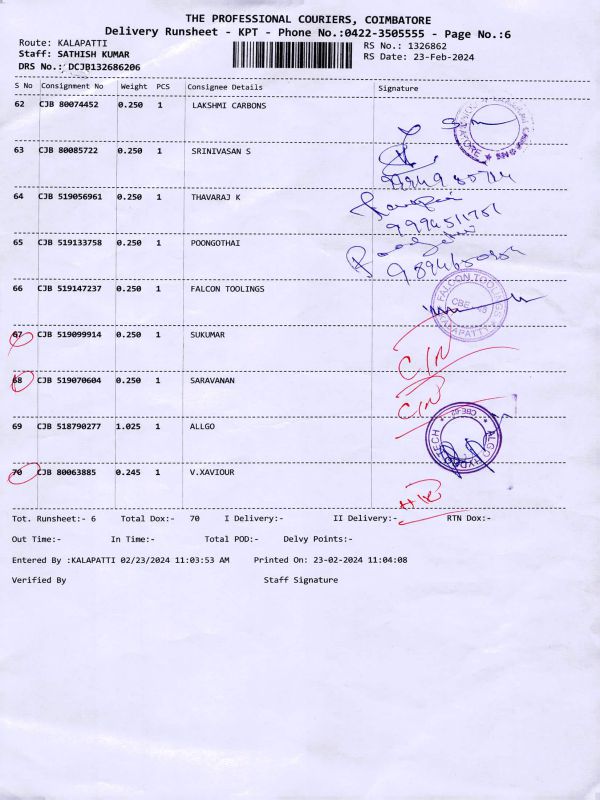 THE PROFESSIONAL COURIERS, COIMBATORE
Delivery Runsheet - KPT - Phone No.:0422-3505555 - Page No.:6
Route: KALAPATTI
RS No.: 1326862
Staff: SATHISH KUMAR
RS Date: 23-Feb-2024
DRS No.: DCJB132686206
S No Consignment No Weight PCS Consignee Details Signature
62 CJB 80074452 0.250 1 LAKSHMI CARBONS
63 CJB 80085722 0.250 1 SRINIVASAN S
64 CJB 519056961 0.250 1 THAVARAJ K
65 CJB 519133758 0.250 1 POONGOTHAI
66 CJB 519147237 0.250 1 FALCON TOOLINGS
FALCON TOOLINGS
KALAPATTI
67 CJB 519099914 0.250 1 SUKUMAR
C/N
68 CJB 519070604 0.250 1 SARAVANAN
C/N
69 CJB 518790277 1.025 1 ALLGO
70 CJB 80063885 0.245 1 V.XAVIOUR
Tot. Runsheet:- 6 Total Dox:- 70 I Delivery:- II Delivery:- RTN Dox:-
Out Time:- In Time:- Total POD:- Delvy Points:-
Entered By :KALAPATTI 02/23/2024 11:03:53 AM Printed On: 23-02-2024 11:04:08
Verified By Staff Signature